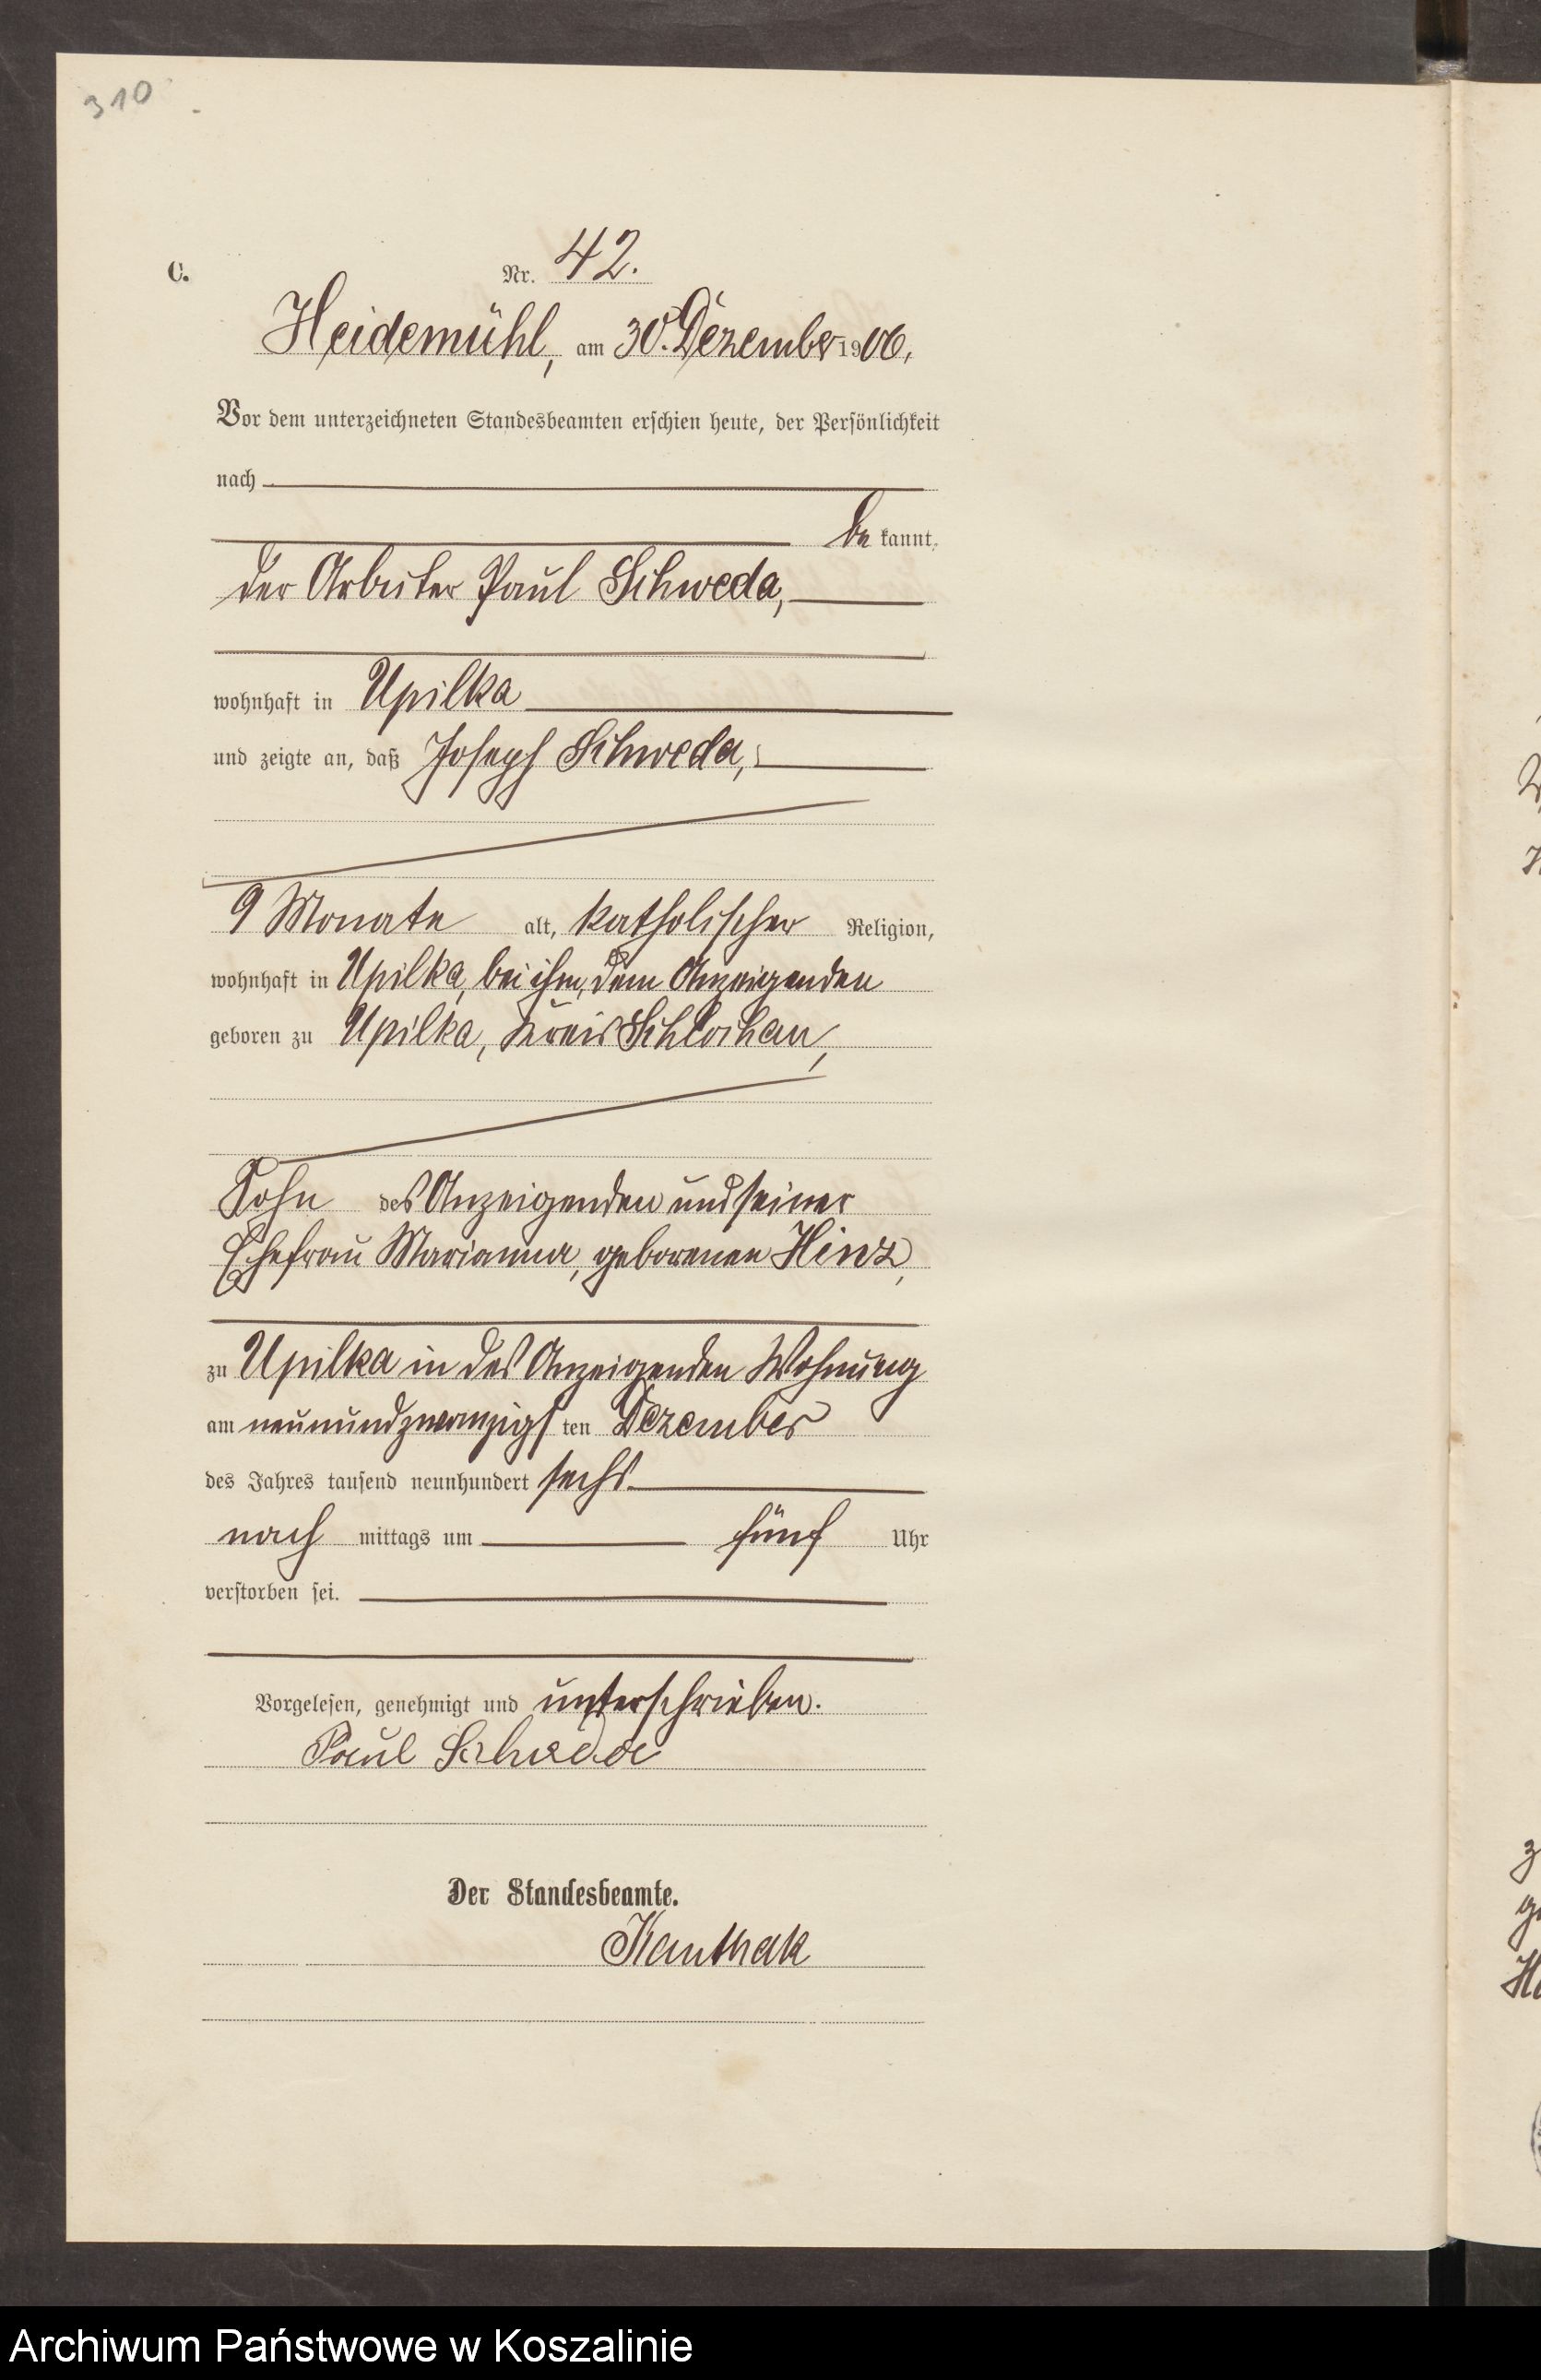 310
C.
Nr. 42.
Heidemühl, am 30. Dezember 1906.
Vor dem unterzeichneten Standesbeamten erschien heute, der Persönlichkeit
nach
be kannt,
der Arbeiter Paul Schweda,
wohnhaft in Upilka
und zeigte an, daß Joseph Schweda,
9 Monate alt, katholischer Religion,
wohnhaft in Upilka, bei ihm, dem Anzeigenden
geboren zu Upilka, Kreis Schlochau,
Sohn des Anzeigenden und seiner
Ehefrau Marianna, geborenen Hinz,
zu Upilka in des Anzeigenden Wohnung
am neunundzwanzigsten Dezember
des Jahres tausend neunhundert sechs
nach mittags um fünf Uhr
verstorben sei.
Vorgelesen, genehmigt und unterschrieben.
Paul Schweda
Der Standesbeamte.
Kanthak
Archiwum Państwowe w Koszalinie